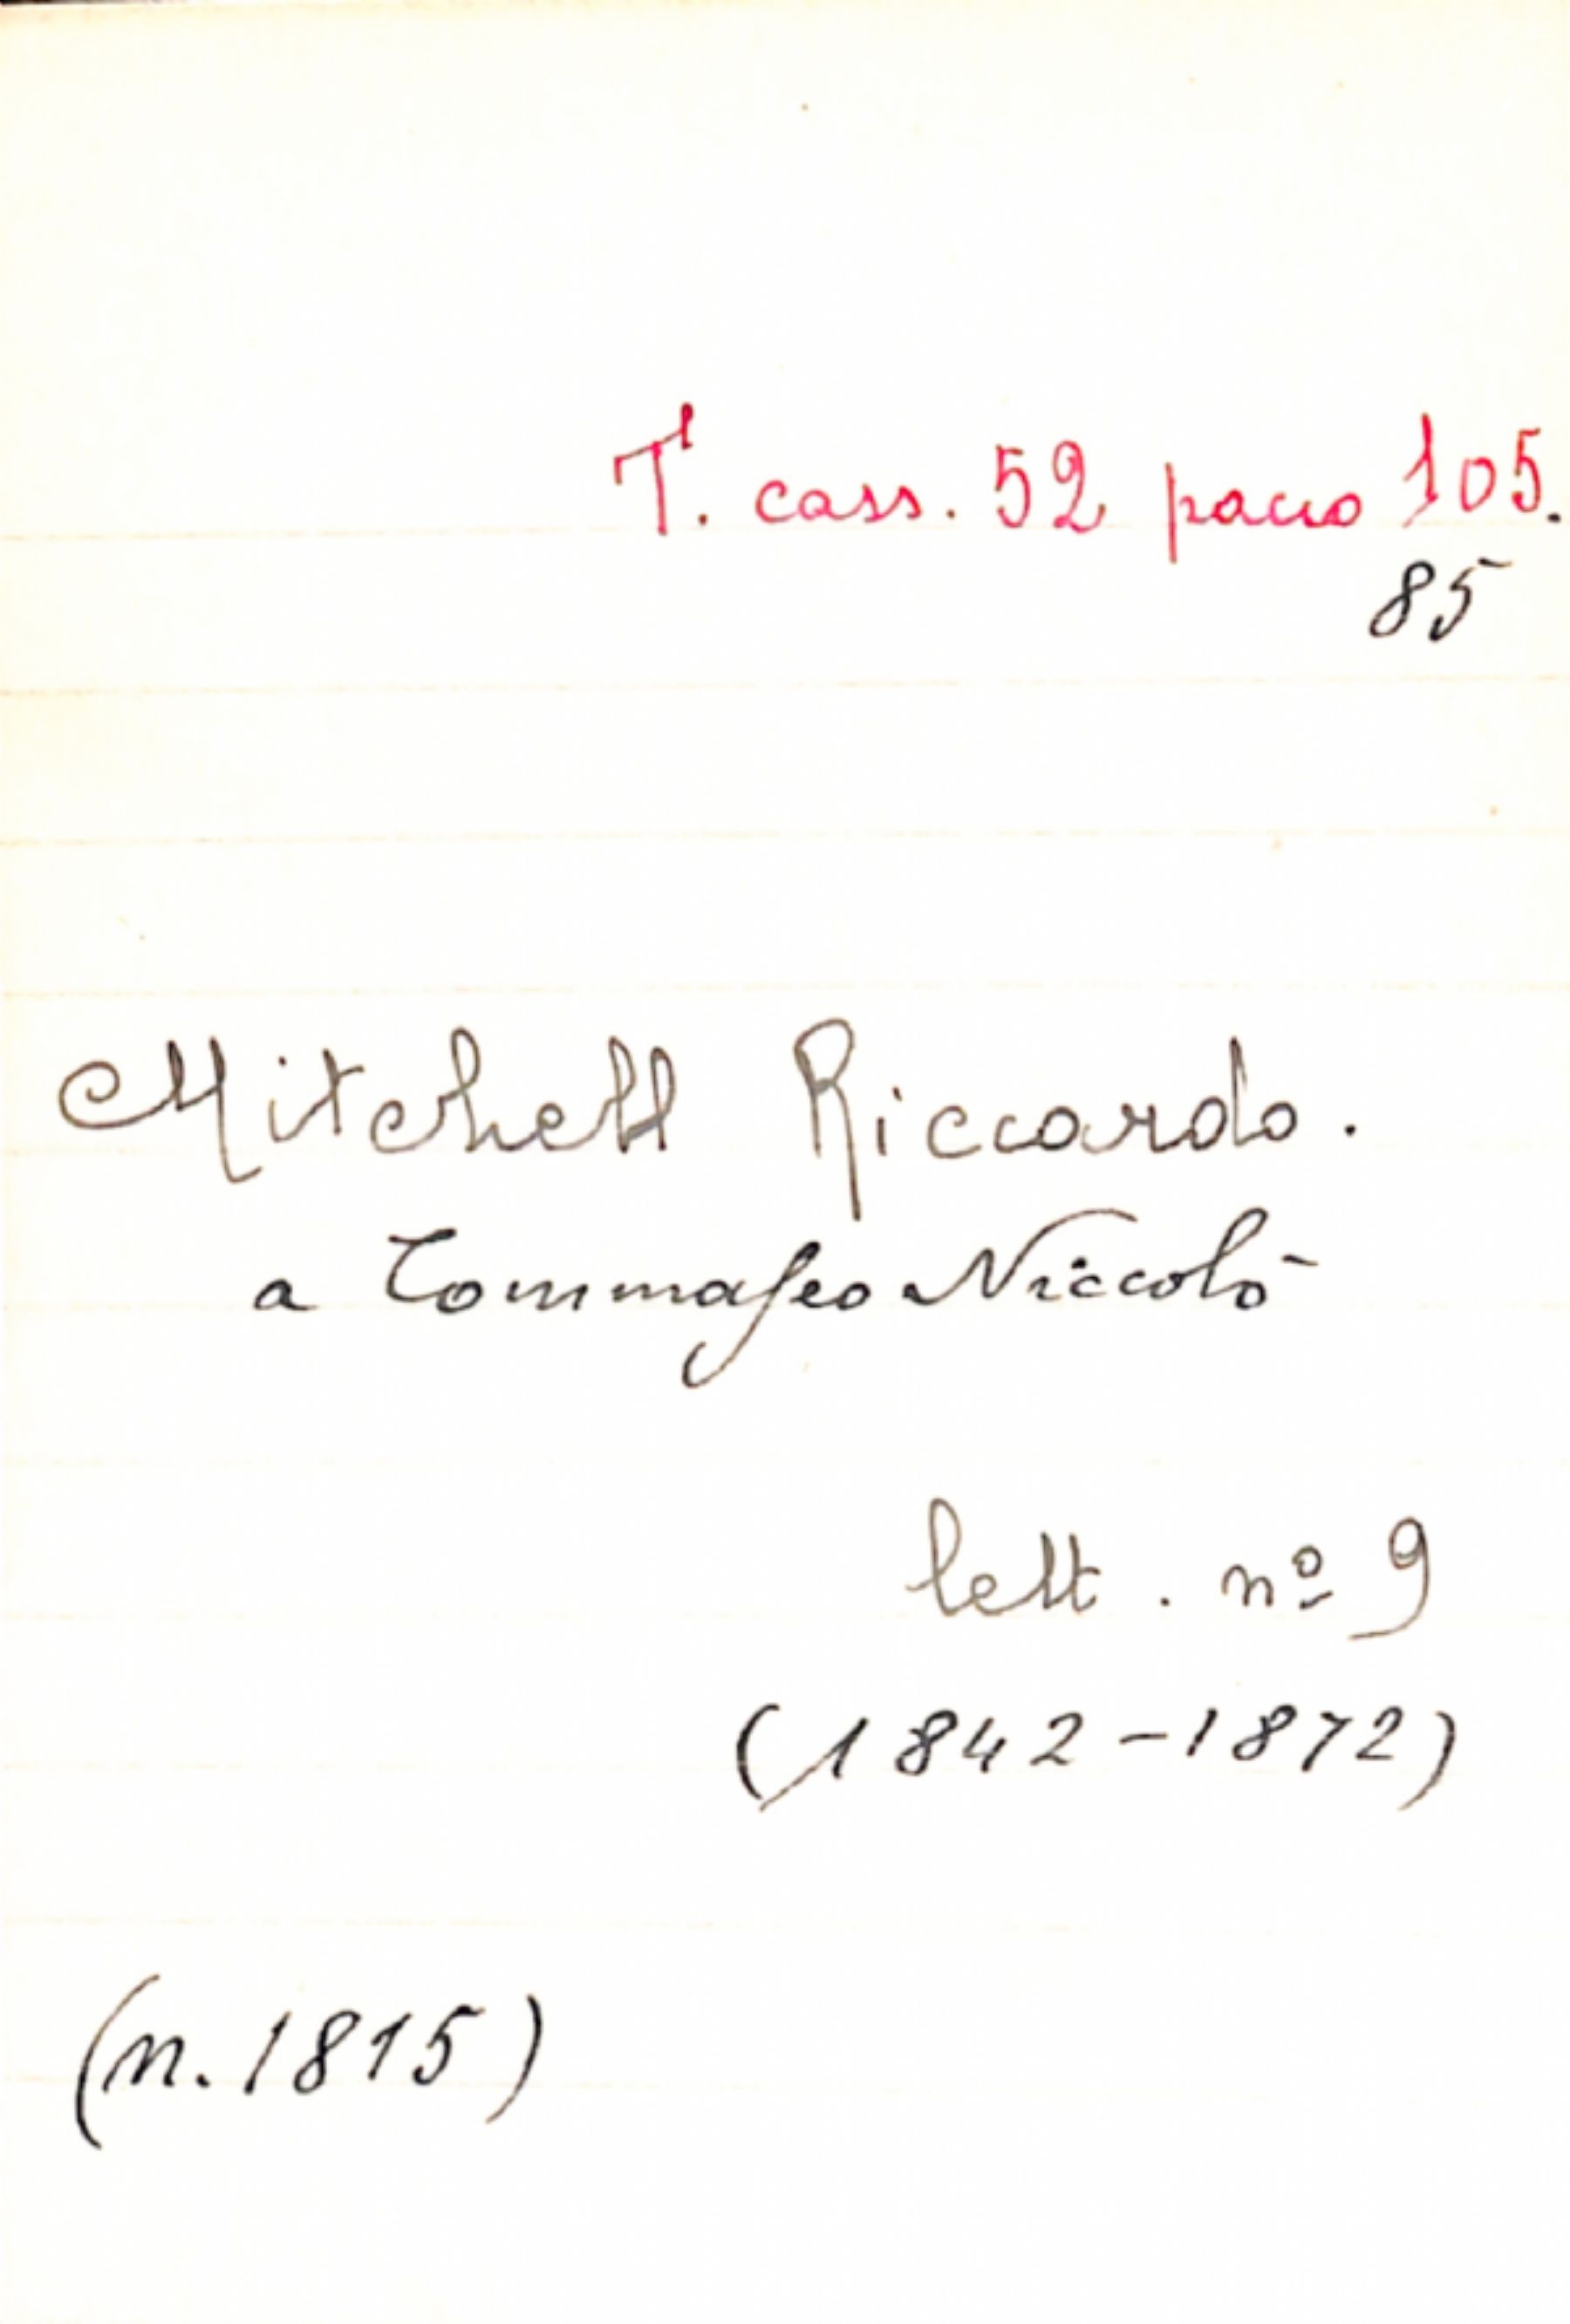 T. cass. 52 pacco 105.
85
Mitchell Riccardo.
a Tommaseo Niccolò
lett. nº 9
(1842-1872)
(n. 1815)